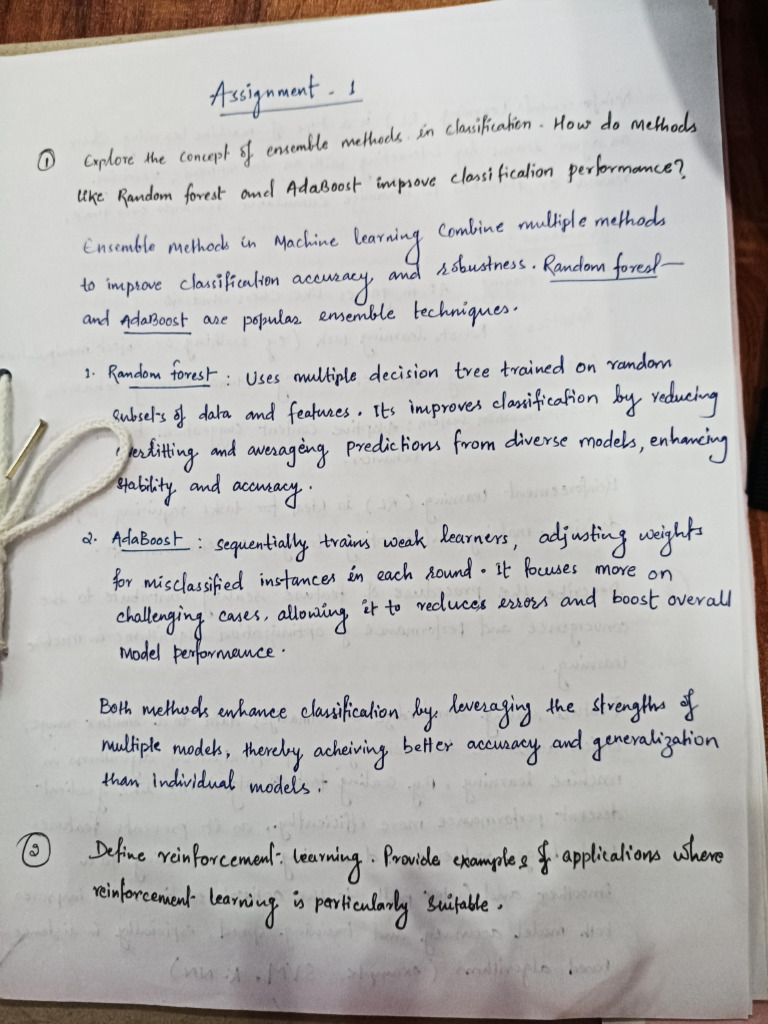 Assignment - 1
① Explore the concept of ensemble methods in classification. How do methods
like Random forest and AdaBoost improve classification performance?
Ensemble methods in Machine learning Combine multiple methods
to improve classification accuracy and robustness. Random forest
and AdaBoost are popular ensemble techniques.
1. Random forest : Uses multiple decision tree trained on random
subsets of data and features. Its improves classification by reducing
overfitting and averaging predictions from diverse models, enhancing
stability and accuracy.
2. AdaBoost : sequentially trains weak learners, adjusting weights
for misclassified instances in each round. It focuses more on
challenging cases, allowing it to reduces errors and boost overall
Model performance.
Both methods enhance classification by leveraging the strengths of
multiple models, thereby acheiving better accuracy and generalization
than individual models.
② Define reinforcement learning. Provide examples of applications where
reinforcement learning is particularly suitable.